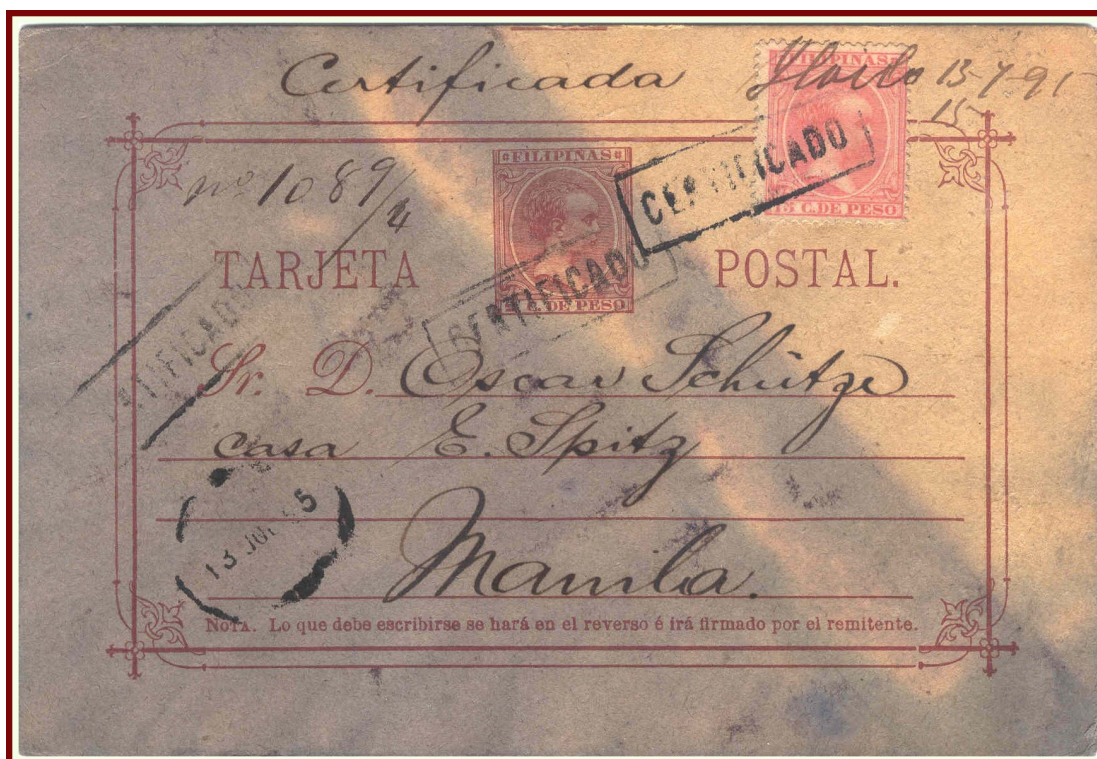 Certificada Iloilo 13-7-95
15
FILIPINAS
15 C. DE PESO
CERTIFICADO
no 1089/4
FILIPINAS
C. DE PESO
TARJETA POSTAL.
CERTIFICADO
TIFICADO
Sr. D. Oscar Schütze
casa E. Spitz
Manila.
13 JUL 95
NOTA. Lo que debe escribirse se hará en el reverso é irá firmado por el remitente.